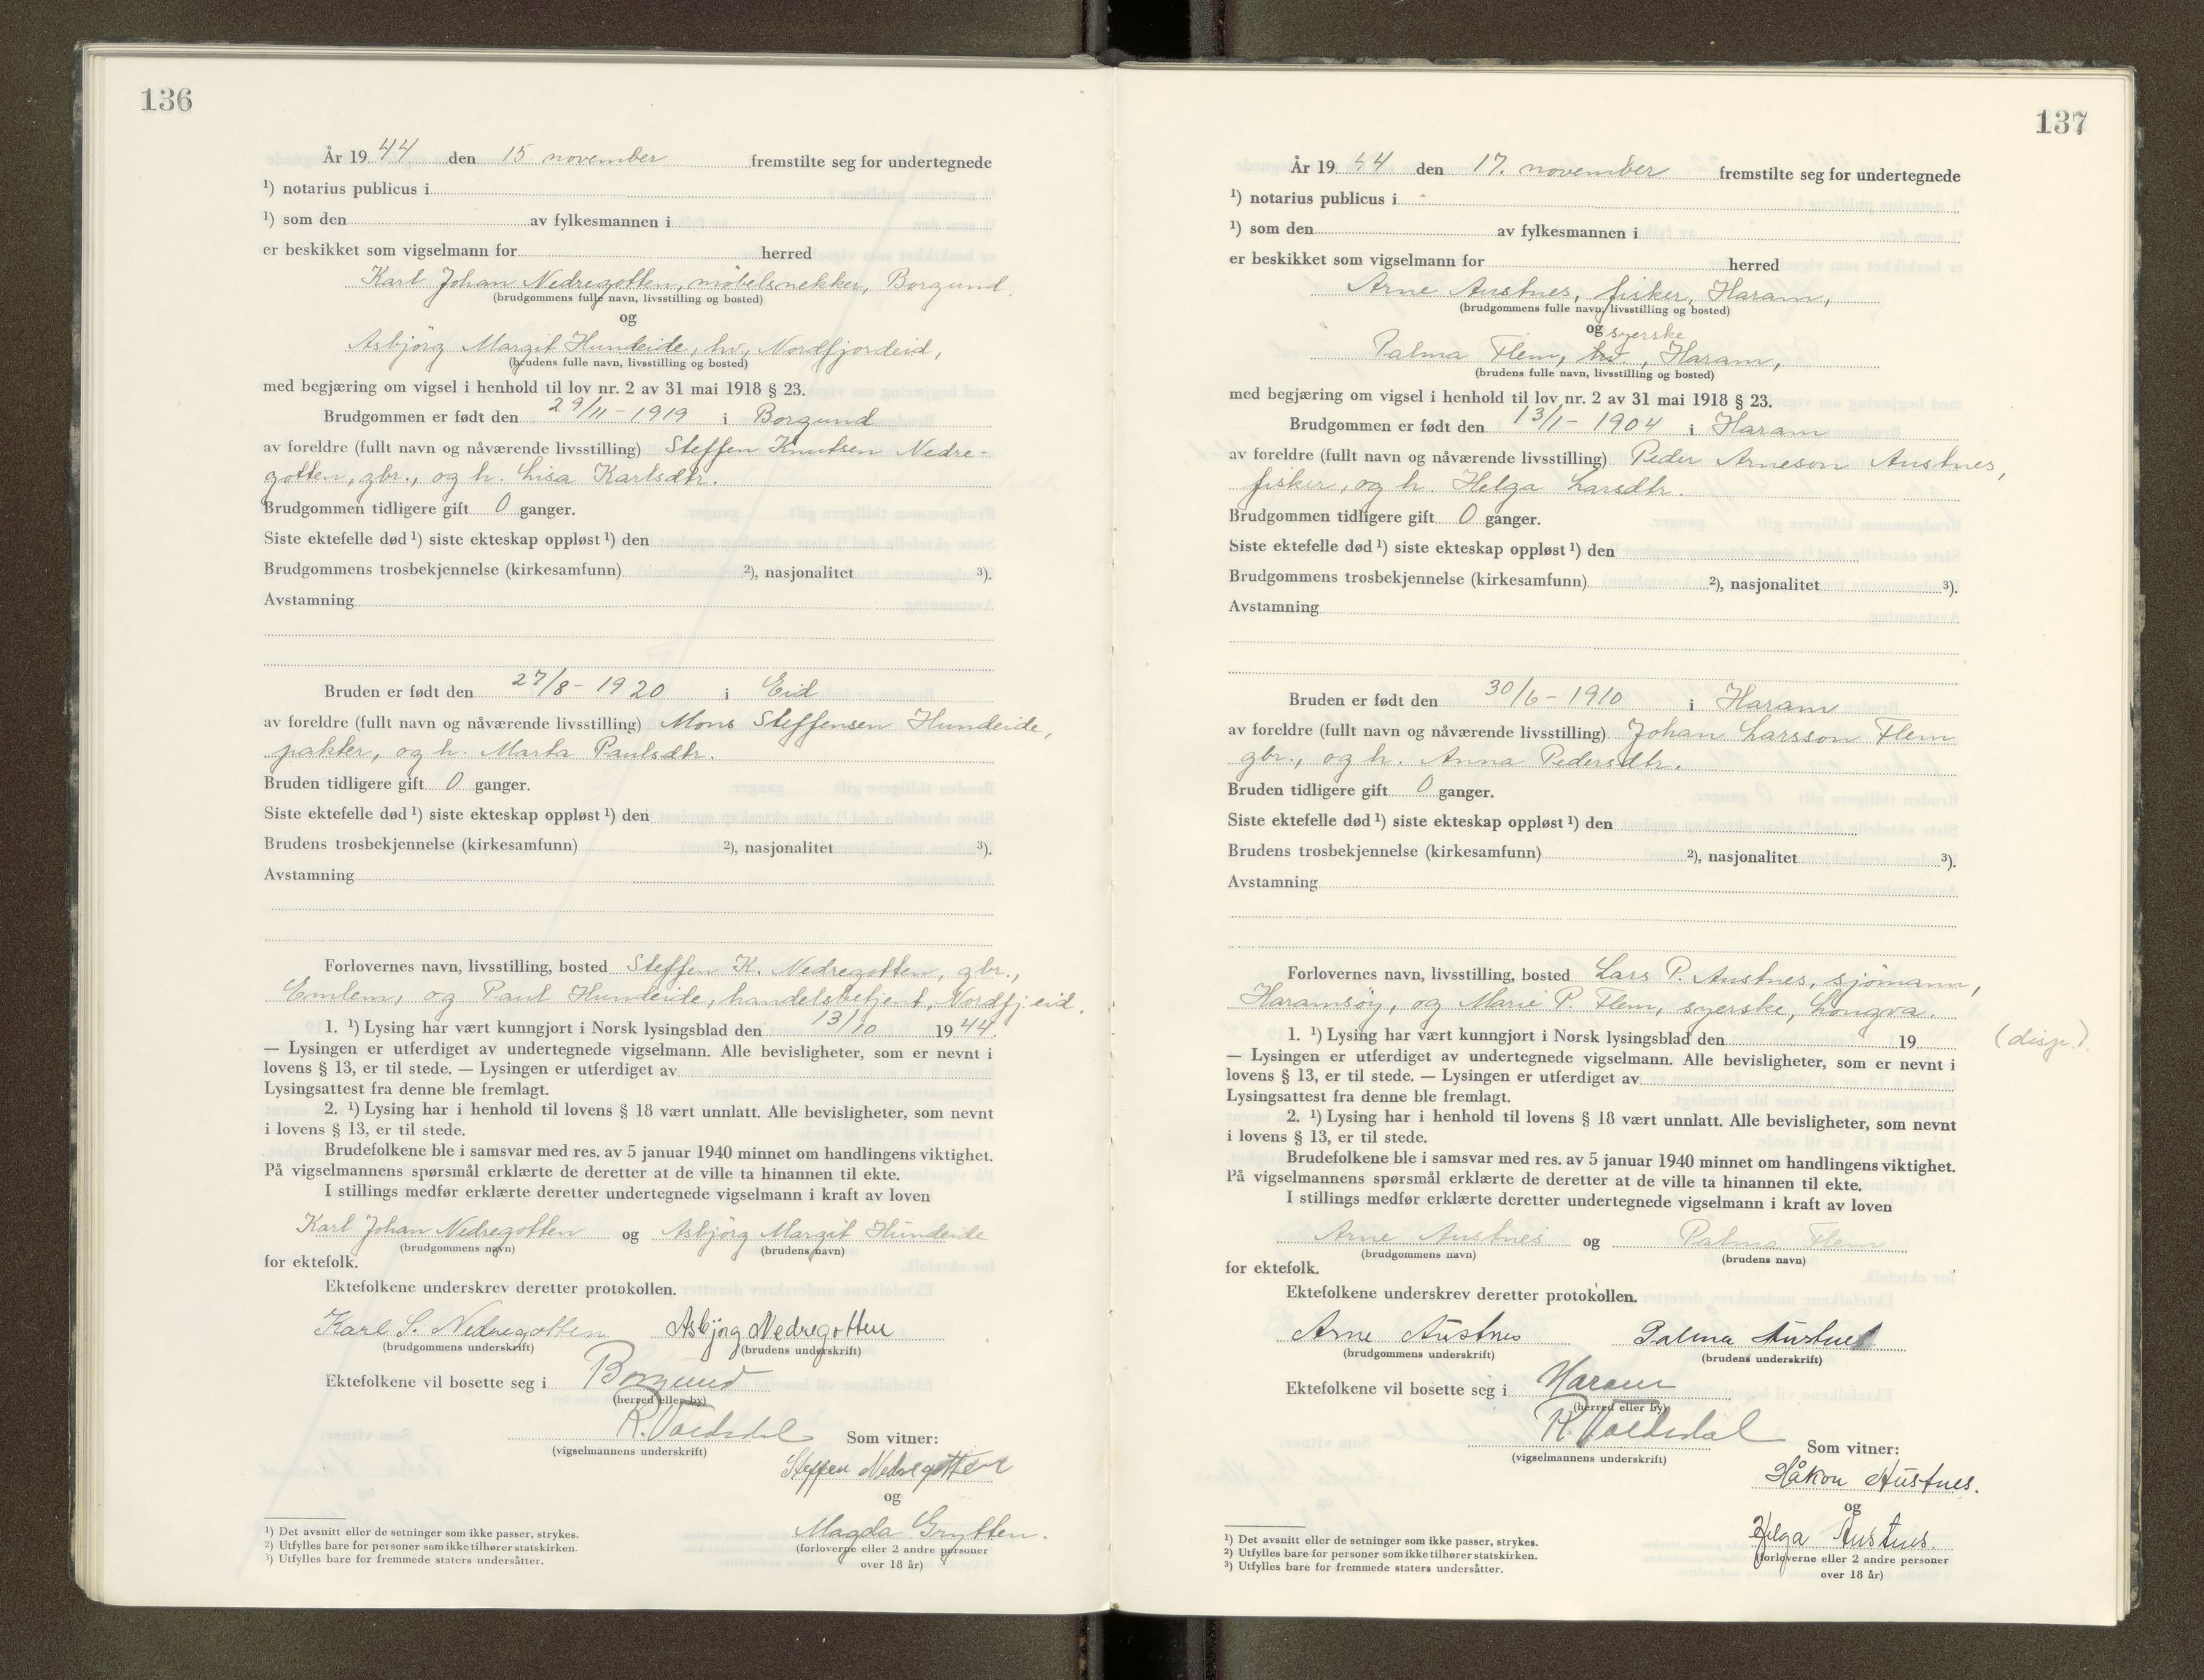 136
År 19 44 den 15 november fremstilte seg for undertegnede
¹) notarius publicus i
¹) som den av fylkesmannen i
er beskikket som vigselmann for herred
Karl Johan Nedregotten, möbelsnekker, Borgund,
(brudgommens fulle navn, livsstilling og bosted)
og
Asbjörg Margit Hundeide, hv., Nordfjordeid,
(brudens fulle navn, livsstilling og bosted)
med begjæring om vigsel i henhold til lov nr. 2 av 31 mai 1918 § 23.
Brudgommen er født den 29/11 - 1919 i Borgund
av foreldre (fullt navn og nåværende livsstilling) Steffen Knutsen Nedre-
gotten, gbr., og h. Lisa Karlsdtr.
Brudgommen tidligere gift 0 ganger.
Siste ektefelle død ¹) siste ekteskap oppløst ¹) den
Brudgommens trosbekjennelse (kirkesamfunn) ²), nasjonalitet ³).
Avstamning
Bruden er født den 27/8 - 1920 i Eid
av foreldre (fullt navn og nåværende livsstilling) Mons Steffensen Hundeide,
pakter, og h. Marta Paulsdtr.
Bruden tidligere gift 0 ganger.
Siste ektefelle død ¹) siste ekteskap oppløst ¹) den
Brudens trosbekjennelse (kirkesamfunn) ²), nasjonalitet ³).
Avstamning
Forlovernes navn, livsstilling, bosted Steffen K. Nedregotten, gbr.,
Emlem, og Paul Hundeide, handelsbetjent, Nordfj.eid.
1. ¹) Lysing har vært kunngjort i Norsk lysingsblad den 13/10 19 44.
— Lysingen er utferdiget av undertegnede vigselmann. Alle bevisligheter, som er nevnt i
lovens § 13, er til stede. — Lysingen er utferdiget av
Lysingsattest fra denne ble fremlagt.
2. ¹) Lysing har i henhold til lovens § 18 vært unnlatt. Alle bevisligheter, som nevnt
i lovens § 13, er til stede.
Brudefolkene ble i samsvar med res. av 5 januar 1940 minnet om handlingens viktighet.
På vigselmannens spørsmål erklærte de deretter at de ville ta hinannen til ekte.
I stillings medfør erklærte deretter undertegnede vigselmann i kraft av loven
Karl Johan Nedregotten og Asbjörg Margit Hundeide
(brudgommens navn) (brudens navn)
for ektefolk.
Ektefolkene underskrev deretter protokollen.
Karl S. Nedregotten Asbjörg Nedregotten
(brudgommens underskrift) (brudens underskrift)
Ektefolkene vil bosette seg i Borgund
(herred eller by)
R. Voldsdal
(vigselmannens underskrift) Som vitner:
Steffen Nedregotten
og
Magda Grytten.
(forloverne eller 2 andre personer
over 18 år)
¹) Det avsnitt eller de setninger som ikke passer, strykes.
²) Utfylles bare for personer som ikke tilhører statskirken.
³) Utfylles bare for fremmede staters undersåtter.
137
År 19 44 den 17. november fremstilte seg for undertegnede
¹) notarius publicus i
¹) som den av fylkesmannen i
er beskikket som vigselmann for herred
Arne Austnes, fisker, Haram,
(brudgommens fulle navn, livsstilling og bosted)
og syerske
Palma Flem, hv., Haram,
(brudens fulle navn, livsstilling og bosted)
med begjæring om vigsel i henhold til lov nr. 2 av 31 mai 1918 § 23.
Brudgommen er født den 13/1 - 1904 i Haram
av foreldre (fullt navn og nåværende livsstilling) Peder Arneson Austnes,
fisker, og h. Helga Larsdtr.
Brudgommen tidligere gift 0 ganger.
Siste ektefelle død ¹) siste ekteskap oppløst ¹) den
Brudgommens trosbekjennelse (kirkesamfunn) ²), nasjonalitet ³).
Avstamning
Bruden er født den 30/6 - 1910 i Haram
av foreldre (fullt navn og nåværende livsstilling) Johan Larsson Flem
gbr., og h. Anna Pedersdtr.
Bruden tidligere gift 0 ganger.
Siste ektefelle død ¹) siste ekteskap oppløst ¹) den
Brudens trosbekjennelse (kirkesamfunn) ²), nasjonalitet ³).
Avstamning
Forlovernes navn, livsstilling, bosted Lars P. Austnes, sjömann,
Haramsöy, og Marie P. Flem, syerske, Longva.
1. ¹) Lysing har vært kunngjort i Norsk lysingsblad den 19 (disp.)
— Lysingen er utferdiget av undertegnede vigselmann. Alle bevisligheter, som er nevnt i
lovens § 13, er til stede. — Lysingen er utferdiget av
Lysingsattest fra denne ble fremlagt.
2. ¹) Lysing har i henhold til lovens § 18 vært unnlatt. Alle bevisligheter, som nevnt
i lovens § 13, er til stede.
Brudefolkene ble i samsvar med res. av 5 januar 1940 minnet om handlingens viktighet.
På vigselmannens spørsmål erklærte de deretter at de ville ta hinannen til ekte.
I stillings medfør erklærte deretter undertegnede vigselmann i kraft av loven
Arne Austnes og Palma Flem
(brudgommens navn) (brudens navn)
for ektefolk.
Ektefolkene underskrev deretter protokollen.
Arne Austnes Palma Austnes
(brudgommens underskrift) (brudens underskrift)
Ektefolkene vil bosette seg i Haram
(herred eller by)
R. Voldsdal
(vigselmannens underskrift) Som vitner:
Håkon Austnes.
og
Helga Austnes.
(forloverne eller 2 andre personer
over 18 år)
¹) Det avsnitt eller de setninger som ikke passer, strykes.
²) Utfylles bare for personer som ikke tilhører statskirken.
³) Utfylles bare for fremmede staters undersåtter.